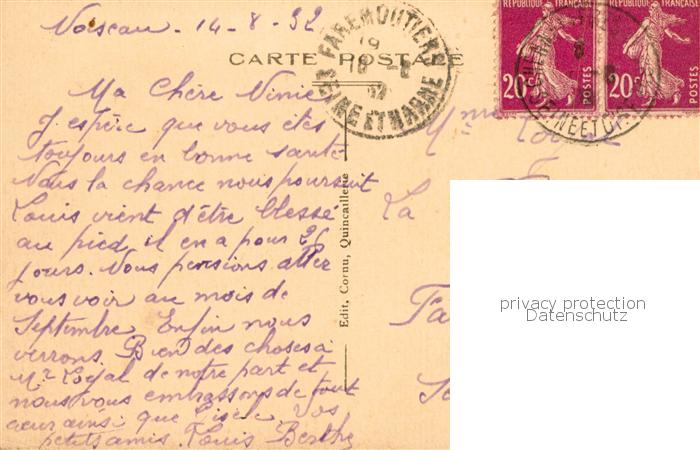 Noiseau - 14-8-32
CARTE POSTALE
FAREMOUTIERS
SEINE ET MARNE
RÉPUBLIQUE FRANÇAISE
20c POSTES
RÉPUBLIQUE FRANÇAISE
20c POSTES
Ma Chère Ninie
J'espère que vous êtes
toujours en bonne santé
Nous la chance nous poursuit
Louis vient d'être blessé
au pied il en a pour 25
jours. Nous pensions aller
vous voir au mois de
Septembre Enfin nous
verrons. Bien des choses à
Mr Loyal de notre part et
nous vous embrassons de tout
cœur ainsi que Gisèle Vos
petits amis. Louis Berthe
Edit. Cornu, Quincaillerie
Mme
La
Fa
privacy protection
Datenschutz